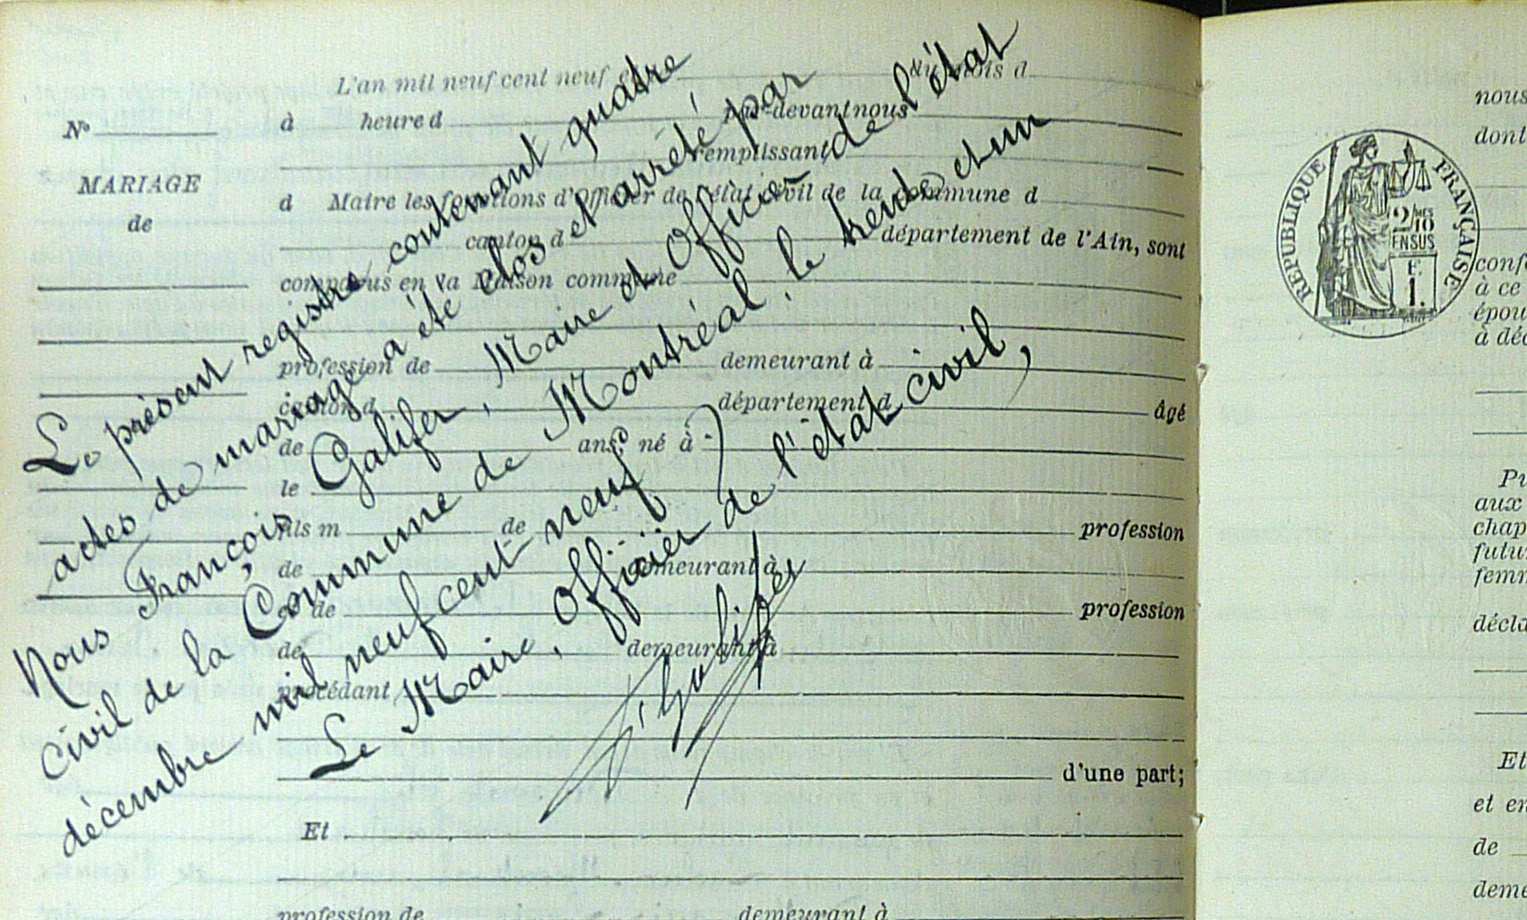 L'an mil neuf cent neuf et du mois d
N° à heure d par-devant nous
remplissant
MARIAGE
d Maire les fonctions d'Officier de l'état civil de la commune d
de
canton d département de l'Ain, sont
comparus en la Maison commune
profession de demeurant à
canton d département d âgé
de ans, né à
le
fils m de profession
de demeurant à
et de profession
de demeurant à
procédant
d'une part;
Et
profession de demeurant à
Le présent registre, contenant quatre
actes de mariage a été clos et arrêté par
Nous François Galifer, Maire et Officier de l'état
civil de la Commune de Montréal, le trente et un
décembre mil neuf cent neuf.
Le Maire, Officier de l'état civil,
F. Galifer
RÉPUBLIQUE FRANÇAISE
2/10
EN SUS
F.
1.
nous
dont
à ce
à
aux
chap
décla
Et
et en
de
deme